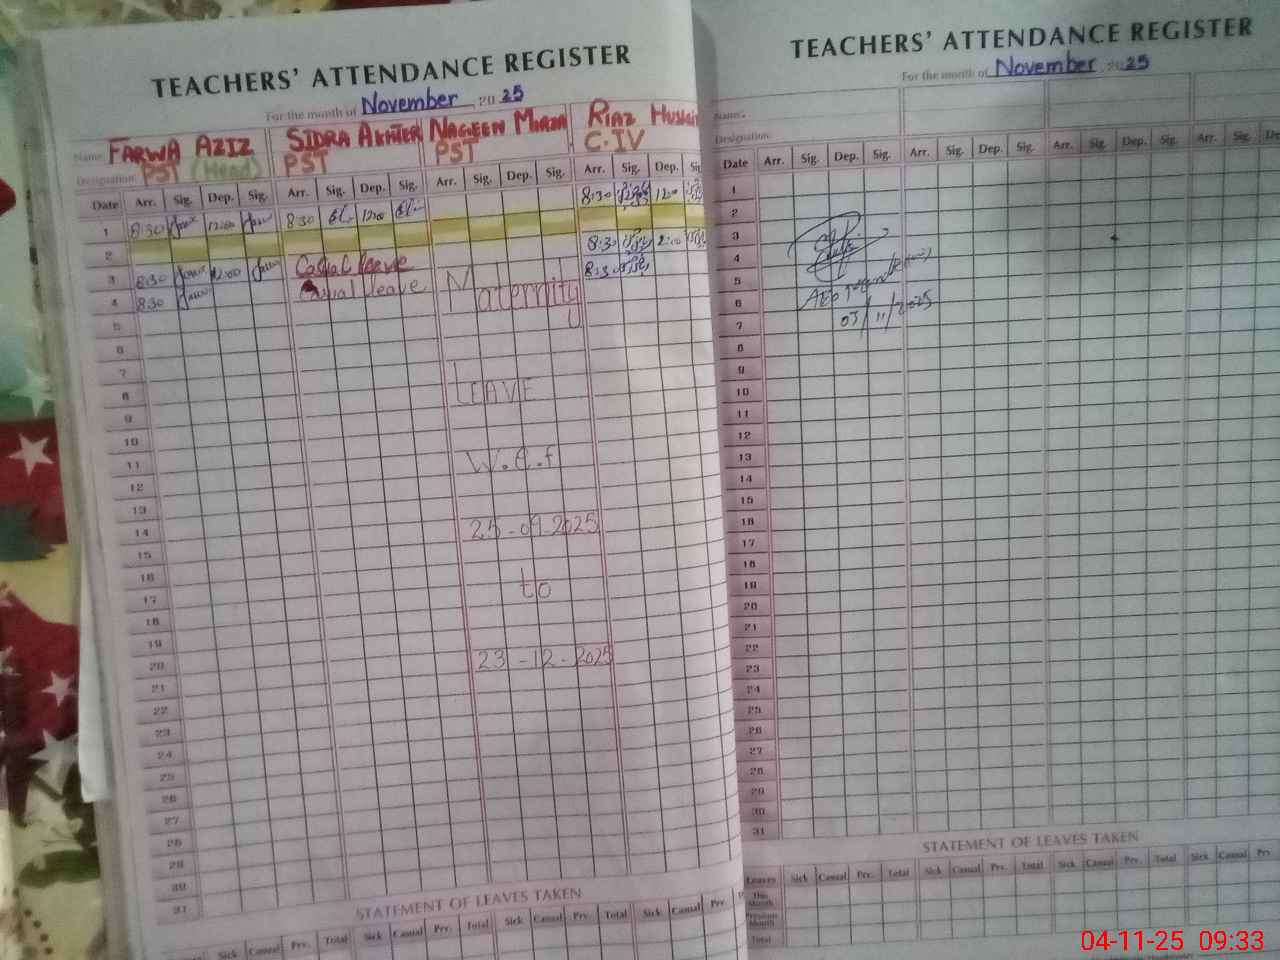 TEACHERS' ATTENDANCE REGISTER
For the month of November 2025
Name: FARWA AZIZ SIDRA AKHTER NAGEEN MIRZA RIAZ Hussain
Designation: PST (Head) PST PST C.IV
Date Arr. Sig. Dep. Sig. Arr. Sig. Dep. Sig. Arr. Sig. Dep. Sig. Arr. Sig. Dep. Sig.
1 8:30 12:00 8:30 12:00 8:30 12:00
2
3 8:30 2:00 Casual leave 8:30 2:00
4 8:30 Casual leave 8:30
Maternity
5
6
7
8 LEAVE
9
10
11 w.e.f
12
13
14 25-09-2025
15
16
17 to
18
19
20 23-12-2025
21
22
23
24
25
26
27
28
29
30
31
STATEMENT OF LEAVES TAKEN
Sick Casual Prv. Total Sick Casual Prv. Total Sick Casual Prv. Total Sick Casual Prv.
TEACHERS' ATTENDANCE REGISTER
For the month of November 2025
Name:
Designation:
Date Arr. Sig. Dep. Sig. Arr. Sig. Dep. Sig. Arr. Sig. Dep. Sig. Arr. Sig. Dep.
1
2
3
4
5
AEO
6
03/11/2025
7
8
9
10
11
12
13
14
15
16
17
18
19
20
21
22
23
24
25
26
27
28
29
30
31
STATEMENT OF LEAVES TAKEN
Leaves Sick Casual Prv. Total Sick Casual Prv. Total Sick Casual Prv. Total Sick Casual Prv.
This Month
Previous Month
Total
04-11-25 09:33